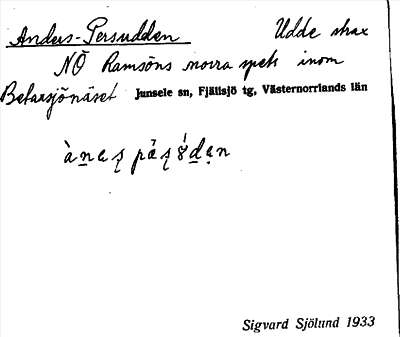 Anders-Persudden Udde strax
NÖ Ramsöns norra spets inom
Betarsjönäset Junsele sn, Fjällsjö tg, Västernorrlands län
Sigvard Sjölund 1933